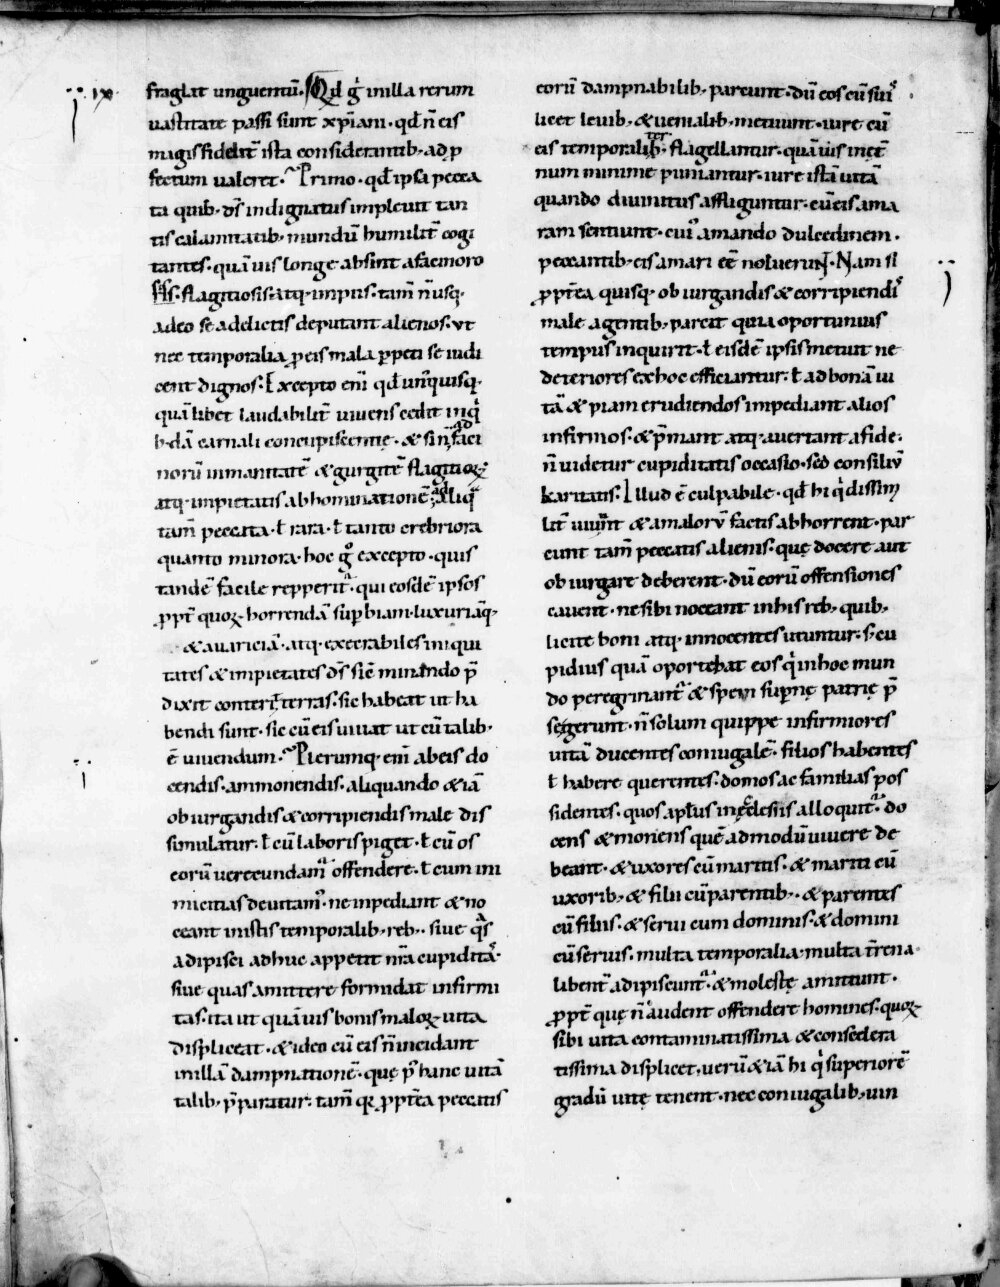 ix
fraglat unguentũ. Qd g̊ in illa rerum
uastitate passi sunt xp̃iani. qđ ñ eis
magis fidelit̃ ista considerantib; ad p
fectum ualeret. Primo. qđ ipsa pecca
ta quib; dš indignatus impleuit tan
tis calamitatib; mundũ humilit̃ cogi
tantes. quãuis longe absint a facinoro
sis. flagitiosis. atq; impiis. tam̃ ñ usq;
adeo se a delictis deputant alienos. ut
nec temporalia p eis mala ppeti se iudi
cent dignos. Excepto eni̅ qđ unꝰquisq;
quãlibet laudabilit̃ uiuens cedit in q̊
b;dã carnali concupiscentię. & si ñ ad faci
norũ inmanitatẽ & gurgitẽ flagitioꝝ
atq; impietatis abhominationẽ. ad aliq̃
tam̃ peccata. ł rara. ł tanto crebriora
quanto minora. hoc g̊ excepto. quis
tandẽ facile repperit̃. qui eosdẽ ipsos
ppt̃ quoꝝ horrendã supbiam. luxuriãq;
& auariciã. atq; execrabiles iniqui
tates & impietates dš sic̃ minando p̃
dixit conterit terras. sic habeat ut ha
bendi sunt. sic cũ eis uiuat ut cũ talib;
ẽ uiuendum. Plerumq; eni̅ ab eis do
cendis. ammonendis. aliquando & iã
obiurgandis & corripiendis male dis
simulatur. ł cũ laboris piget. ł cũ os
eorũ uerecundam̃ offendere. ł cum ini
micitias deuitam̃. ne inpediant & no
ceant in istis temporalib; reb;. siue q̃s
adipisci adhuc appetit nr̃a cupiditas.
siue quas amittere formidat infirmi
tas. ita ut quãuis bonis maloꝝ uita
displiceat. & ideo cũ eis ñ incidant
in illã dampnationẽ. quę p̃ hanc uitã
talib; p̃paratur. tam̃ qꝛ ppt̃ea peccatis
eorũ dampnabilib; parcunt. dũ eos cũ sui̊
licet leuib; & uenialib; metuunt. iure cũ
eis temporalit̃ter flagellantur. quãuis in et̃
num minime puniantur. iure istã uitã
quando diuinitus affliguntur. cũ eis ama
ram sentiunt. cuiꝰ amando dulcedinem.
peccantib; eis amari eẽ noluerunt. Nam si
ppt̃ea quisq; obiurgandis & corripiendi̊
male agentib; parcit quia oportunius
tempus inquirit. ł eisdẽ ipsis metuit ne
deteriores ex hoc efficiantur. ł ad bonã ui
tã & piam erudiendos impediant alios
infirmos. & p̃mant atq; auertant a fide.
ñ uidetur cupiditatis occasio. sed consiliũ
karitatis. Illud ẽ culpabile. qđ hi q̊ dissim
lit̃ uiuunt & a maloꝝ factis abhorrent. par
cunt tam̃ peccatis alienis. quę docere aut
obiurgare deberent. dũ eorũ offensiones
cauent. ne sibi noceant in his reb; quib;
licite boni atq; innocentes utuntur. s; cu
pidius quã oportebat eos q̊ in hoc mun
do peregrinant̃. & spem supnę patrię p̃
se gerunt. ñ solum quippe infirmiores
uitã ducentes coniugalẽ. filios habentes
ł habere querentes. domos ac familias pos
sidentes. quos apl̃us in ęcclesiis alloquit̃. do
cens & monens quẽadmodũ uiuere de
beant. & uxores cũ maritis. & mariti cũ
uxorib; & filii cũ parentib;. & parentes
cũ filiis. & serui cum dominis. & domini
cũ seruis. multa temporalia. multa t̃rena
libent̃ adipiscunt̃. & moleste amittunt.
ppt̃ quę ñ audent offendere homines. quoꝝ
sibi uita contaminatissima & conscelera
tissima displicet. uerũ & iã hi q̊ superiorẽ
gradũ uitę tenent. nec coniugalib; uin